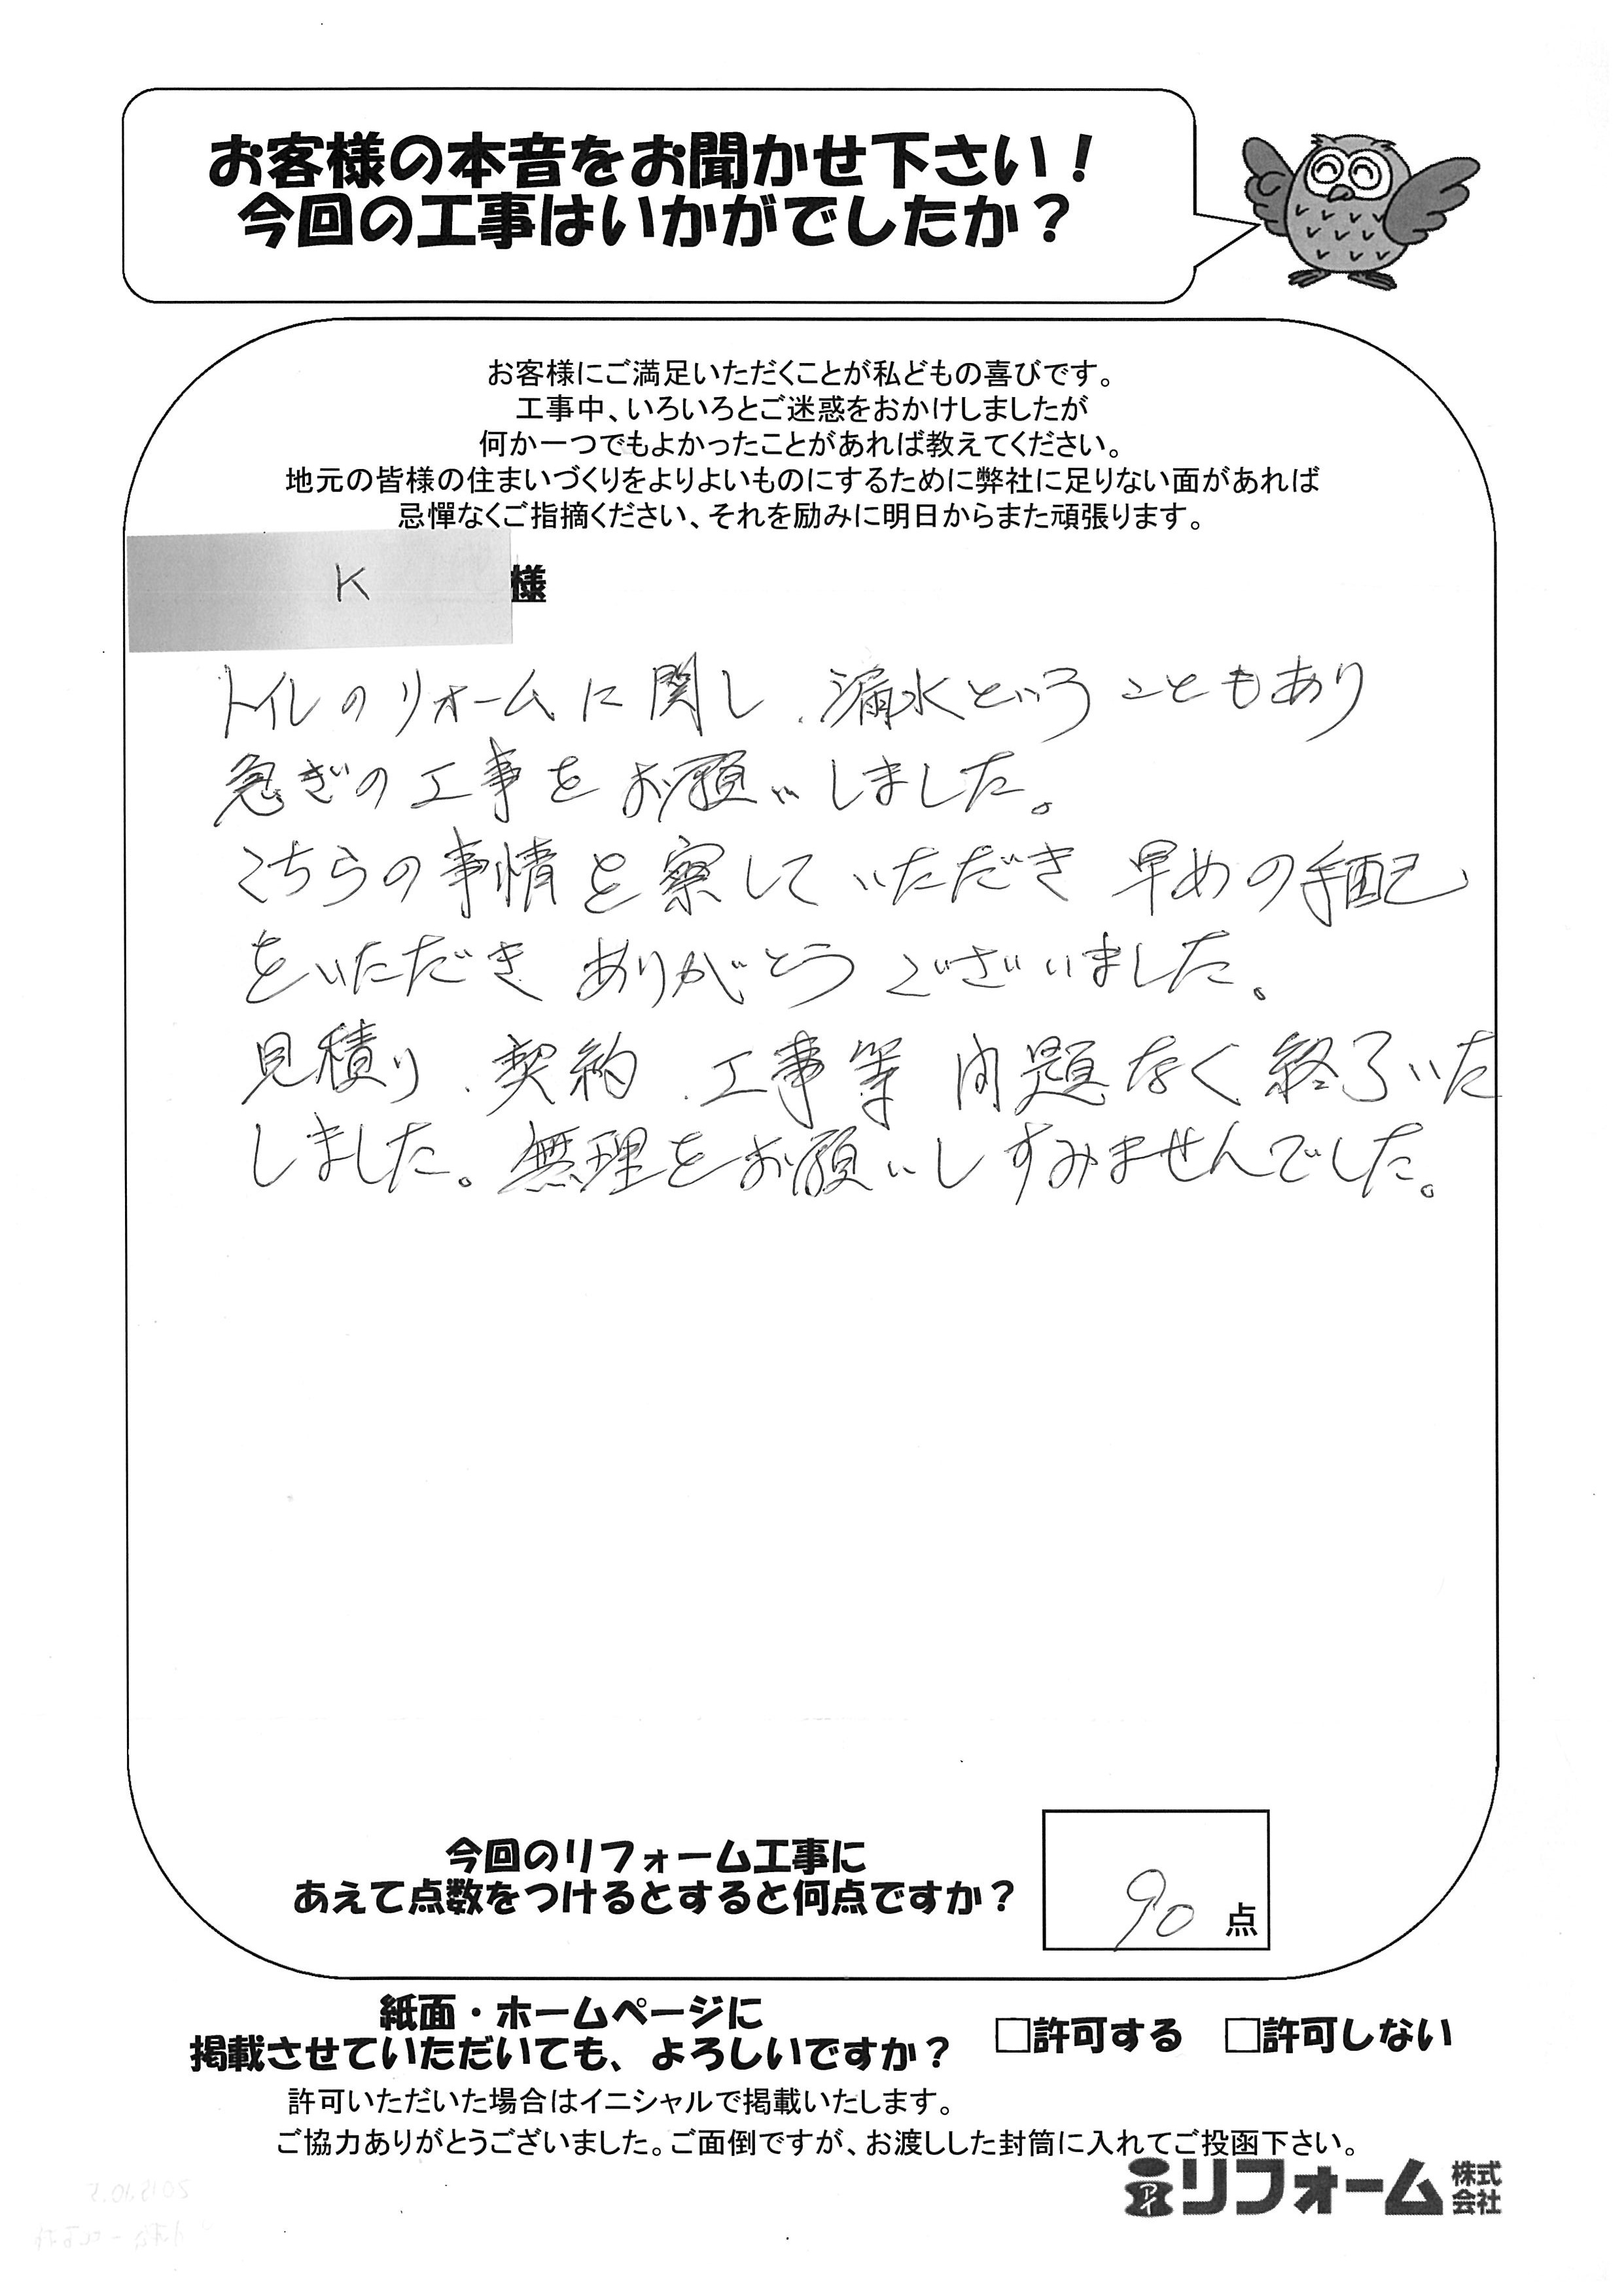 お客様の本音をお聞かせ下さい！
今回の工事はいかがでしたか？
お客様にご満足いただくことが私どもの喜びです。
工事中、いろいろとご迷惑をおかけしましたが
何か一つでもよかったことがあれば教えてください。
地元の皆様の住まいづくりをよりよいものにするために弊社に足りない面があれば
忌憚なくご指摘ください、それを励みに明日からまた頑張ります。
K 様
トイレのリォームに関し、漏水ということもあり
急ぎの工事をお願いしました。
こちらの事情を察していただき 早めの手配
をいただき ありがとうございました。
見積り、契約、工事等 問題なく終了いた
しました。無理をお願いしすみませんでした。
今回のリフォーム工事に
あえて点数をつけるとすると何点ですか？
90 点
紙面・ホームページに
掲載させていただいても、よろしいですか？
□許可する □許可しない
許可いただいた場合はイニシャルで掲載いたします。
ご協力ありがとうございました。ご面倒ですが、お渡しした封筒に入れてご投函下さい。
リフォーム株式会社